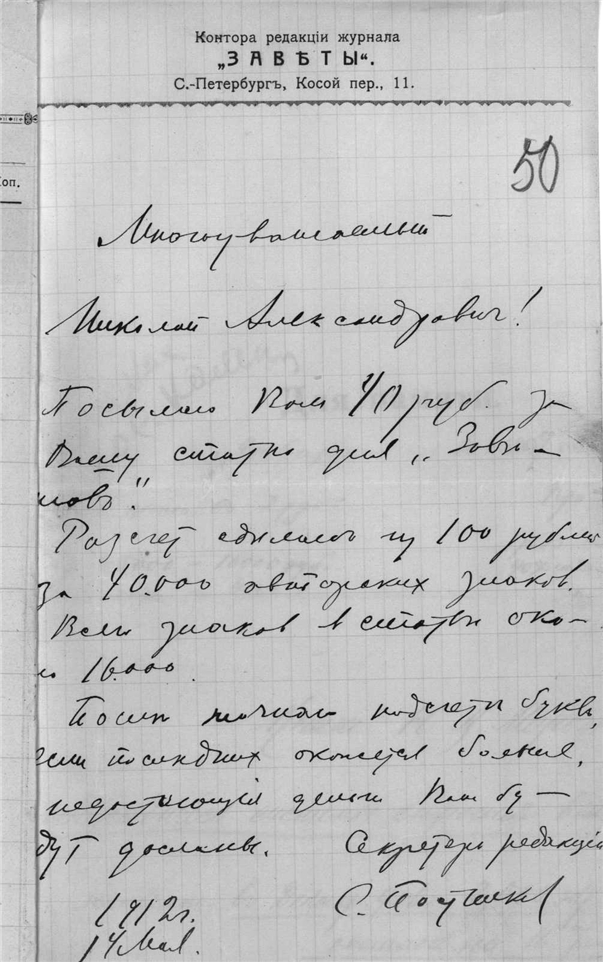 Контора редакціи журнала
„ЗАВѢТЫ“.
С.-Петербургъ, Косой пер., 11.
50
коп.
Многоуважаемый
Николай Александрович!
Посылаю Вам 40 руб. за
Вашу статью для „Заве-
тов".
Расчет сделал из 100 рублей
за 40.000 авторских знаков.
Всех знаков в статье око-
ло 16.000.
После точного подсчета букв,
если последних окажется больше,
недостающія деньги Вам бу-
дут досланы. Секретарь редакціи
С. Постников
1912 г.
14 Мая.